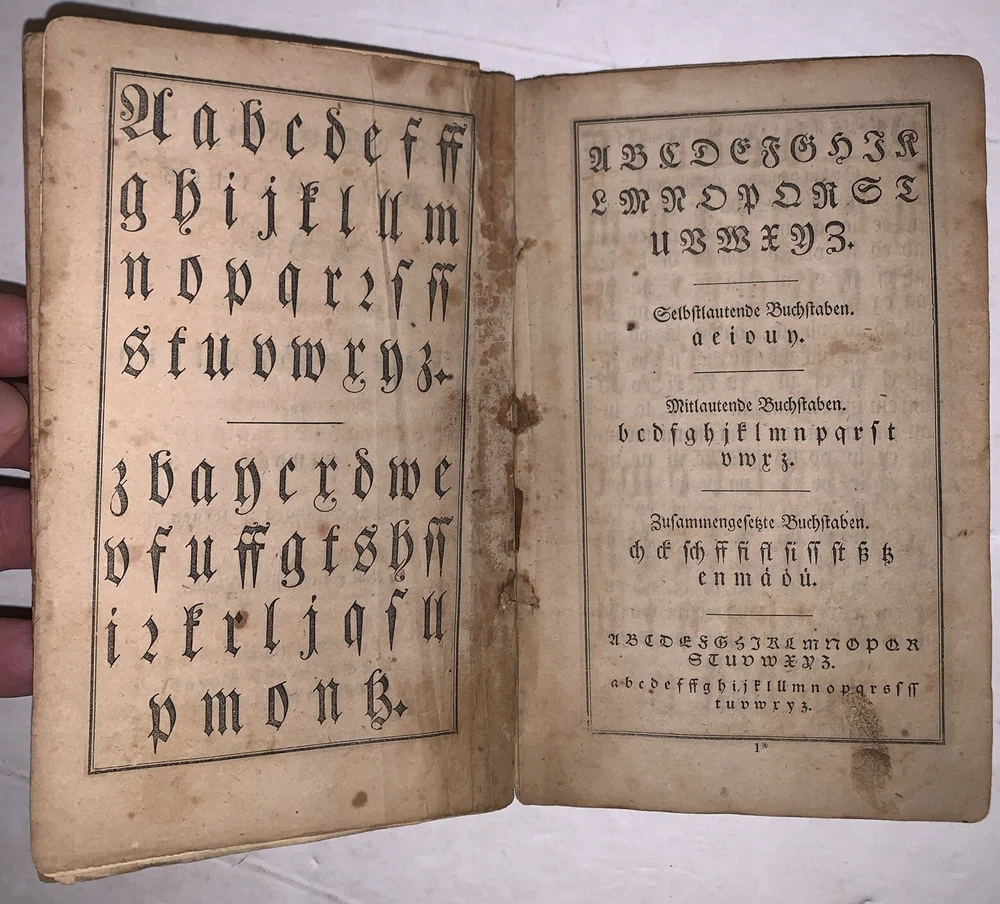 A a b c d e f ff
g h i j k l ll m
n o p q r ꝛ ſ ſſ
s t u v w x y z.
z b a y c x d w e
v f u ff g t s h ſſ
i ꝛ k r l j q ſ ll
p m o n tz.
A B C D E F G H I K
L M N O P Q R S T
U V W X Y Z.
Selbſtlautende Buchſtaben.
a e i o u y.
Mitlautende Buchſtaben.
b c d f g h j k l m n p q r ſ t
v w x z.
Zuſammengeſetzte Buchſtaben.
ch ck ſch ff fi fl ſi ſſ ſt ß tz
e n m ä ö ü.
A B C D E F G H I K L M N O P Q R
S T U V W X Y Z.
a b c d e f ff g h i j k l ll m n o p q r s ſ ſſ
t u v w x y z.
1*